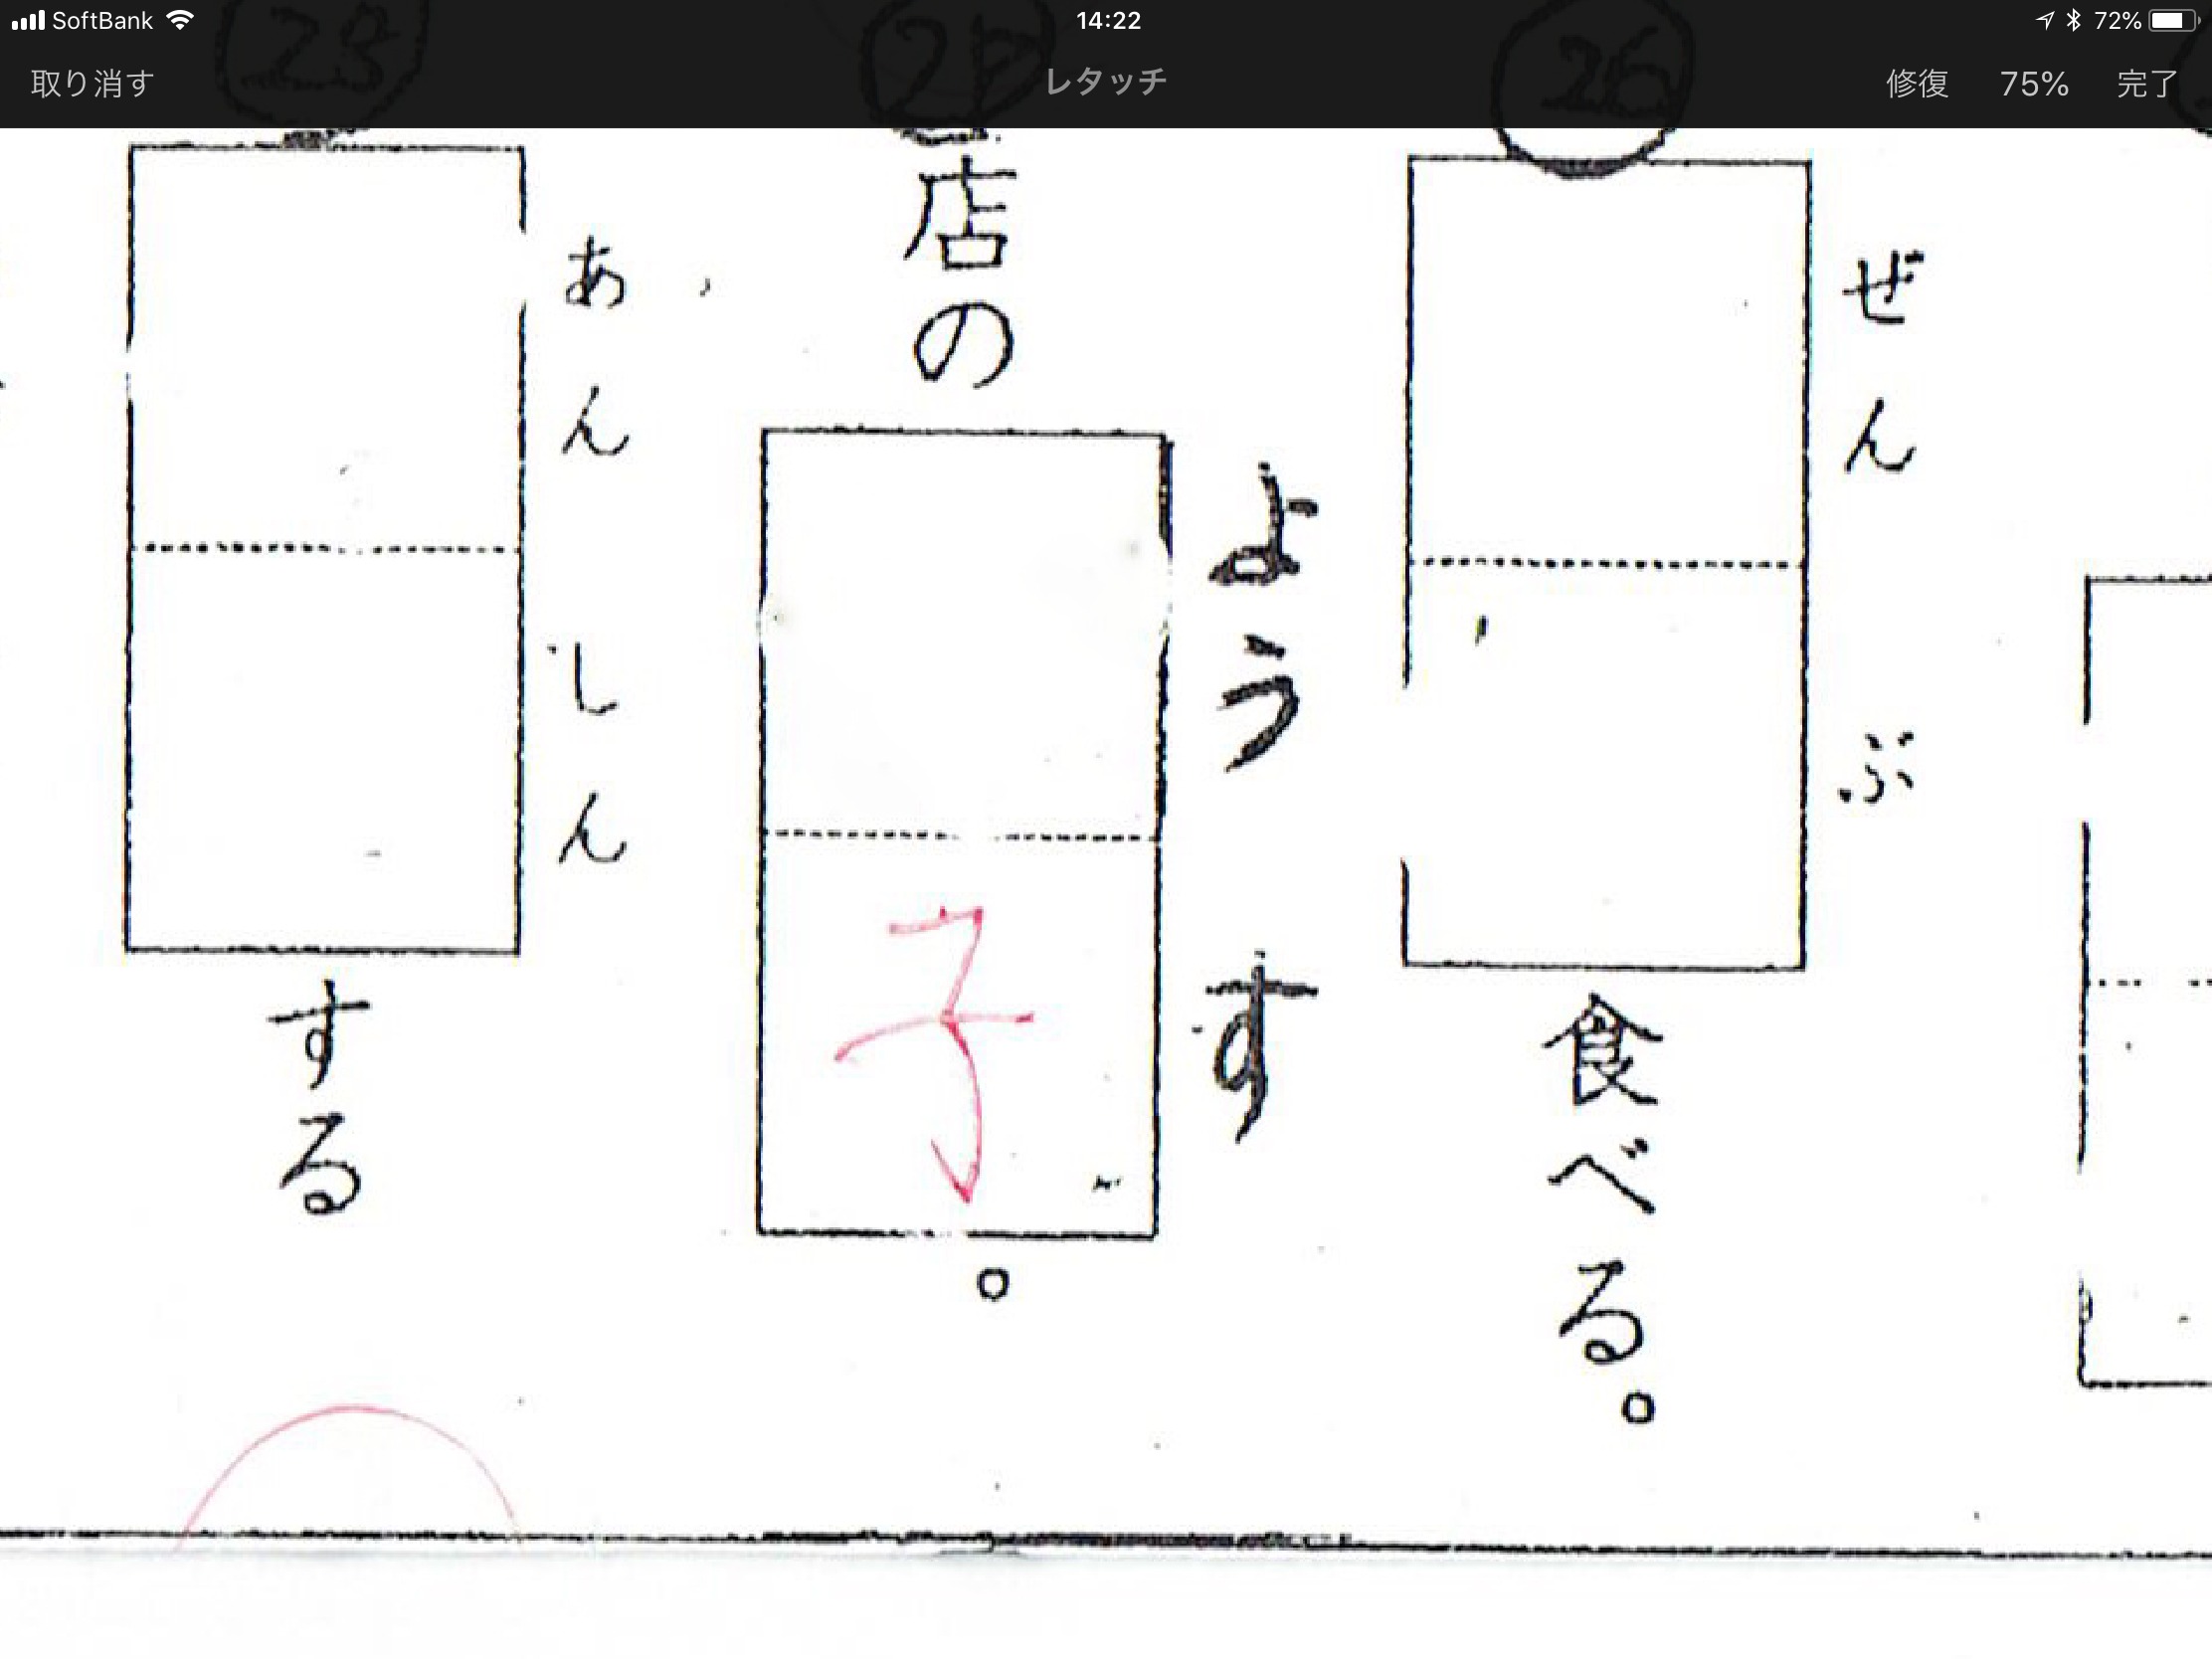 SoftBank 14:22 72%
取り消す レタッチ 修復 75% 完了
26
ぜん ぶ
食べる。
店の
よう す
子
。
28
あん しん
する